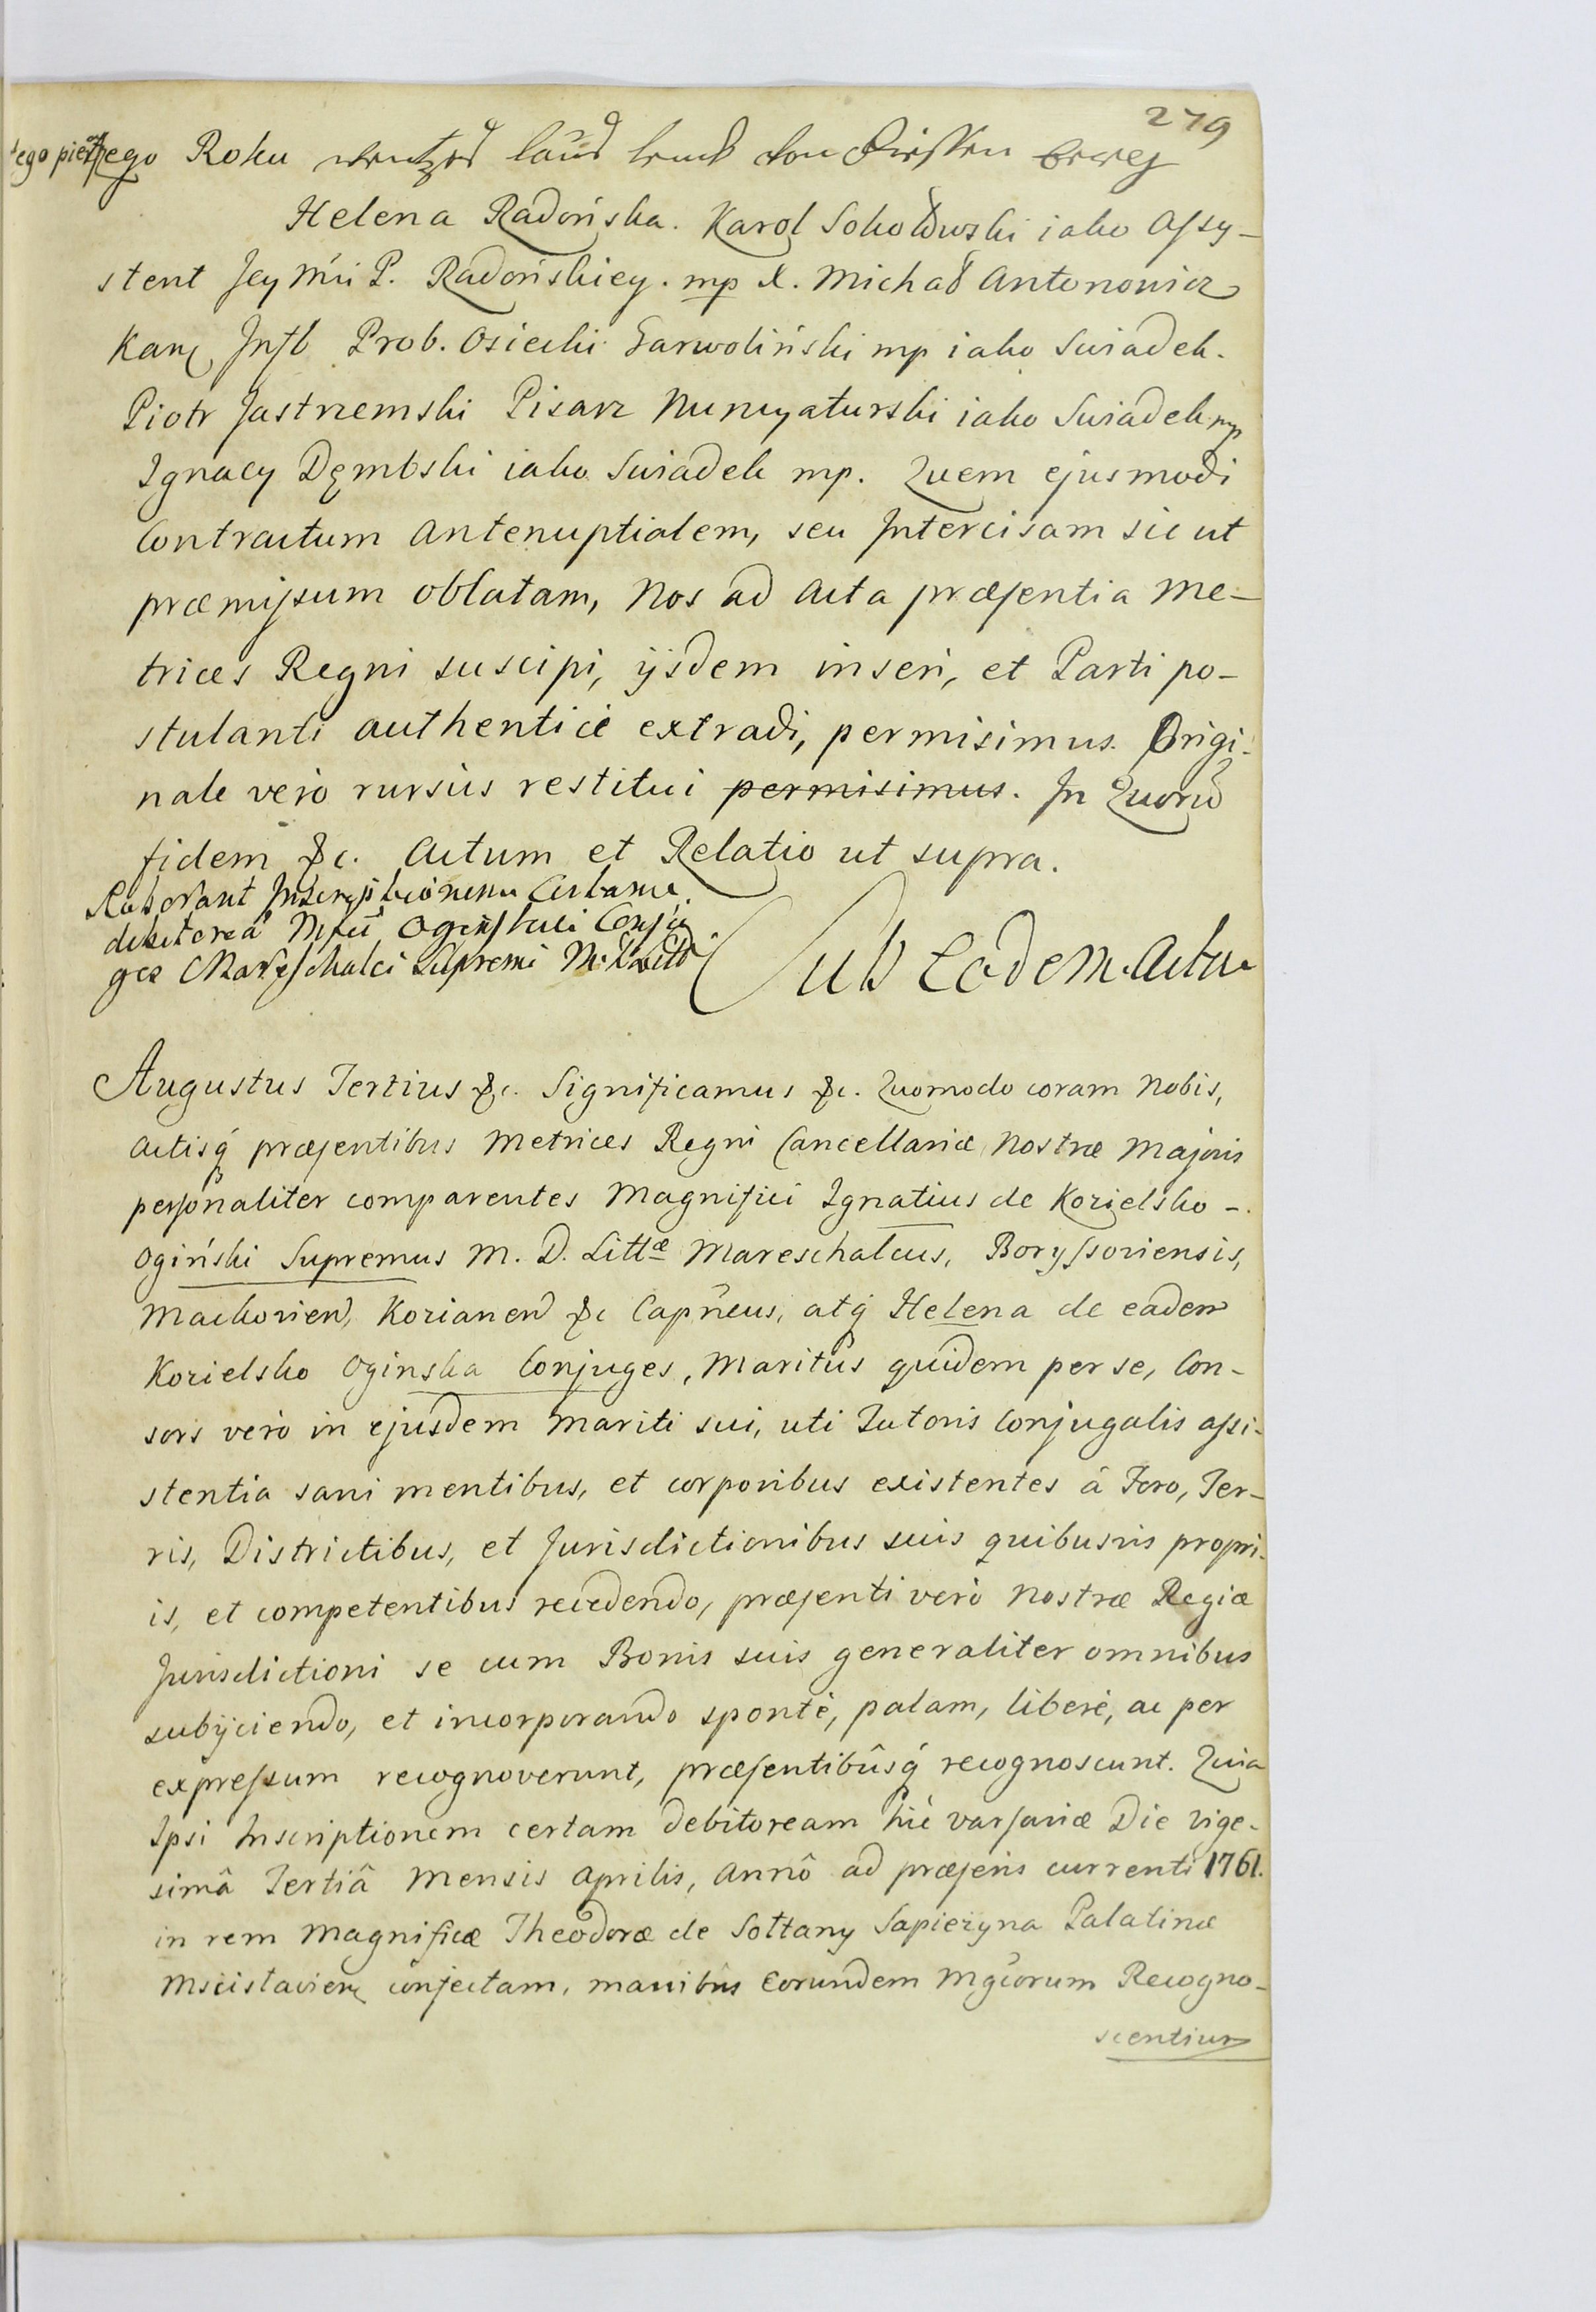 279
tego pierszego Roku
Helena Radońska. Karol Sokołowski iako Assy-
stent Jey Mći P. Radońskiey. mp X. Michał Antonowicz
Kan Infl Prob. Osiecki Garwoliński mp iako Swiadek.
Piotr Jastrzemski Pisarz Nuncyaturski iako Swiadek mp
Ignacy Dęmbski iako Swiadek mp. Quem ejusmodi
Contractum Antenuptialem, seu Intercisam sic ut
præmissum oblatam, Nos ad Acta præsentia Me-
trices Regni suscipi, ijsdem inseri, et Parti po-
stulanti authenticè extradi, permisimus. Origi-
nale verò rursùs restitui permisimus. In Quorũ
fidem &c. Actum et Relatio ut supra.
Roborant Inscriptionem Certam
debitoreā Mfci Ogińscii Conju
ges Mareschalci Supremi M. D. Litt
Sub Eodem Actu
Augustus Tertius &c. Significamus &c. Quomodo coram Nobis,
Actisq́ præsentibus Metrices Regni Cancellariæ Nostræ Majoris
personaliter comparentes Magnifici Ignatius de Kozielsko -
Ogiński Supremus M. D. Littæ Mareschalcus, Boryssoviensis,
Mackovien, Kozianen &c Capneus, atq́ Helena de eadem
Kozielsko Oginska Conjuges, Maritus quidem per se, Con-
sors verò in ejusdem Mariti sui, uti Tutoris Conjugalis assi-
stentia sani mentibus, et corporibus existentes à Foro, Ter-
ris, Districtibus, et Jurisdictionibus suis quibusvis propri-
is, et competentibus recedendo, præsenti verò Nostræ Regiæ
Jurisdictioni se cum Bonis suis generaliter omnibus
subijciendo, et incorporando spontè, palam, liberè, ac per
expressum recognoverunt, præsentibûsq́ recognoscunt. Quia
Ipsi Inscriptionem certam debitoream hic Varsaviæ Die Vige-
simâ Tertiâ Mensis Aprilis, Annô ad præsens currenti 1761.
in rem Magnificæ Theodoræ de Sołtany Sapiezyna Palatinæ
Mscislavien confectam, manibus Eorundem Mgcorum Recogno-
scentium